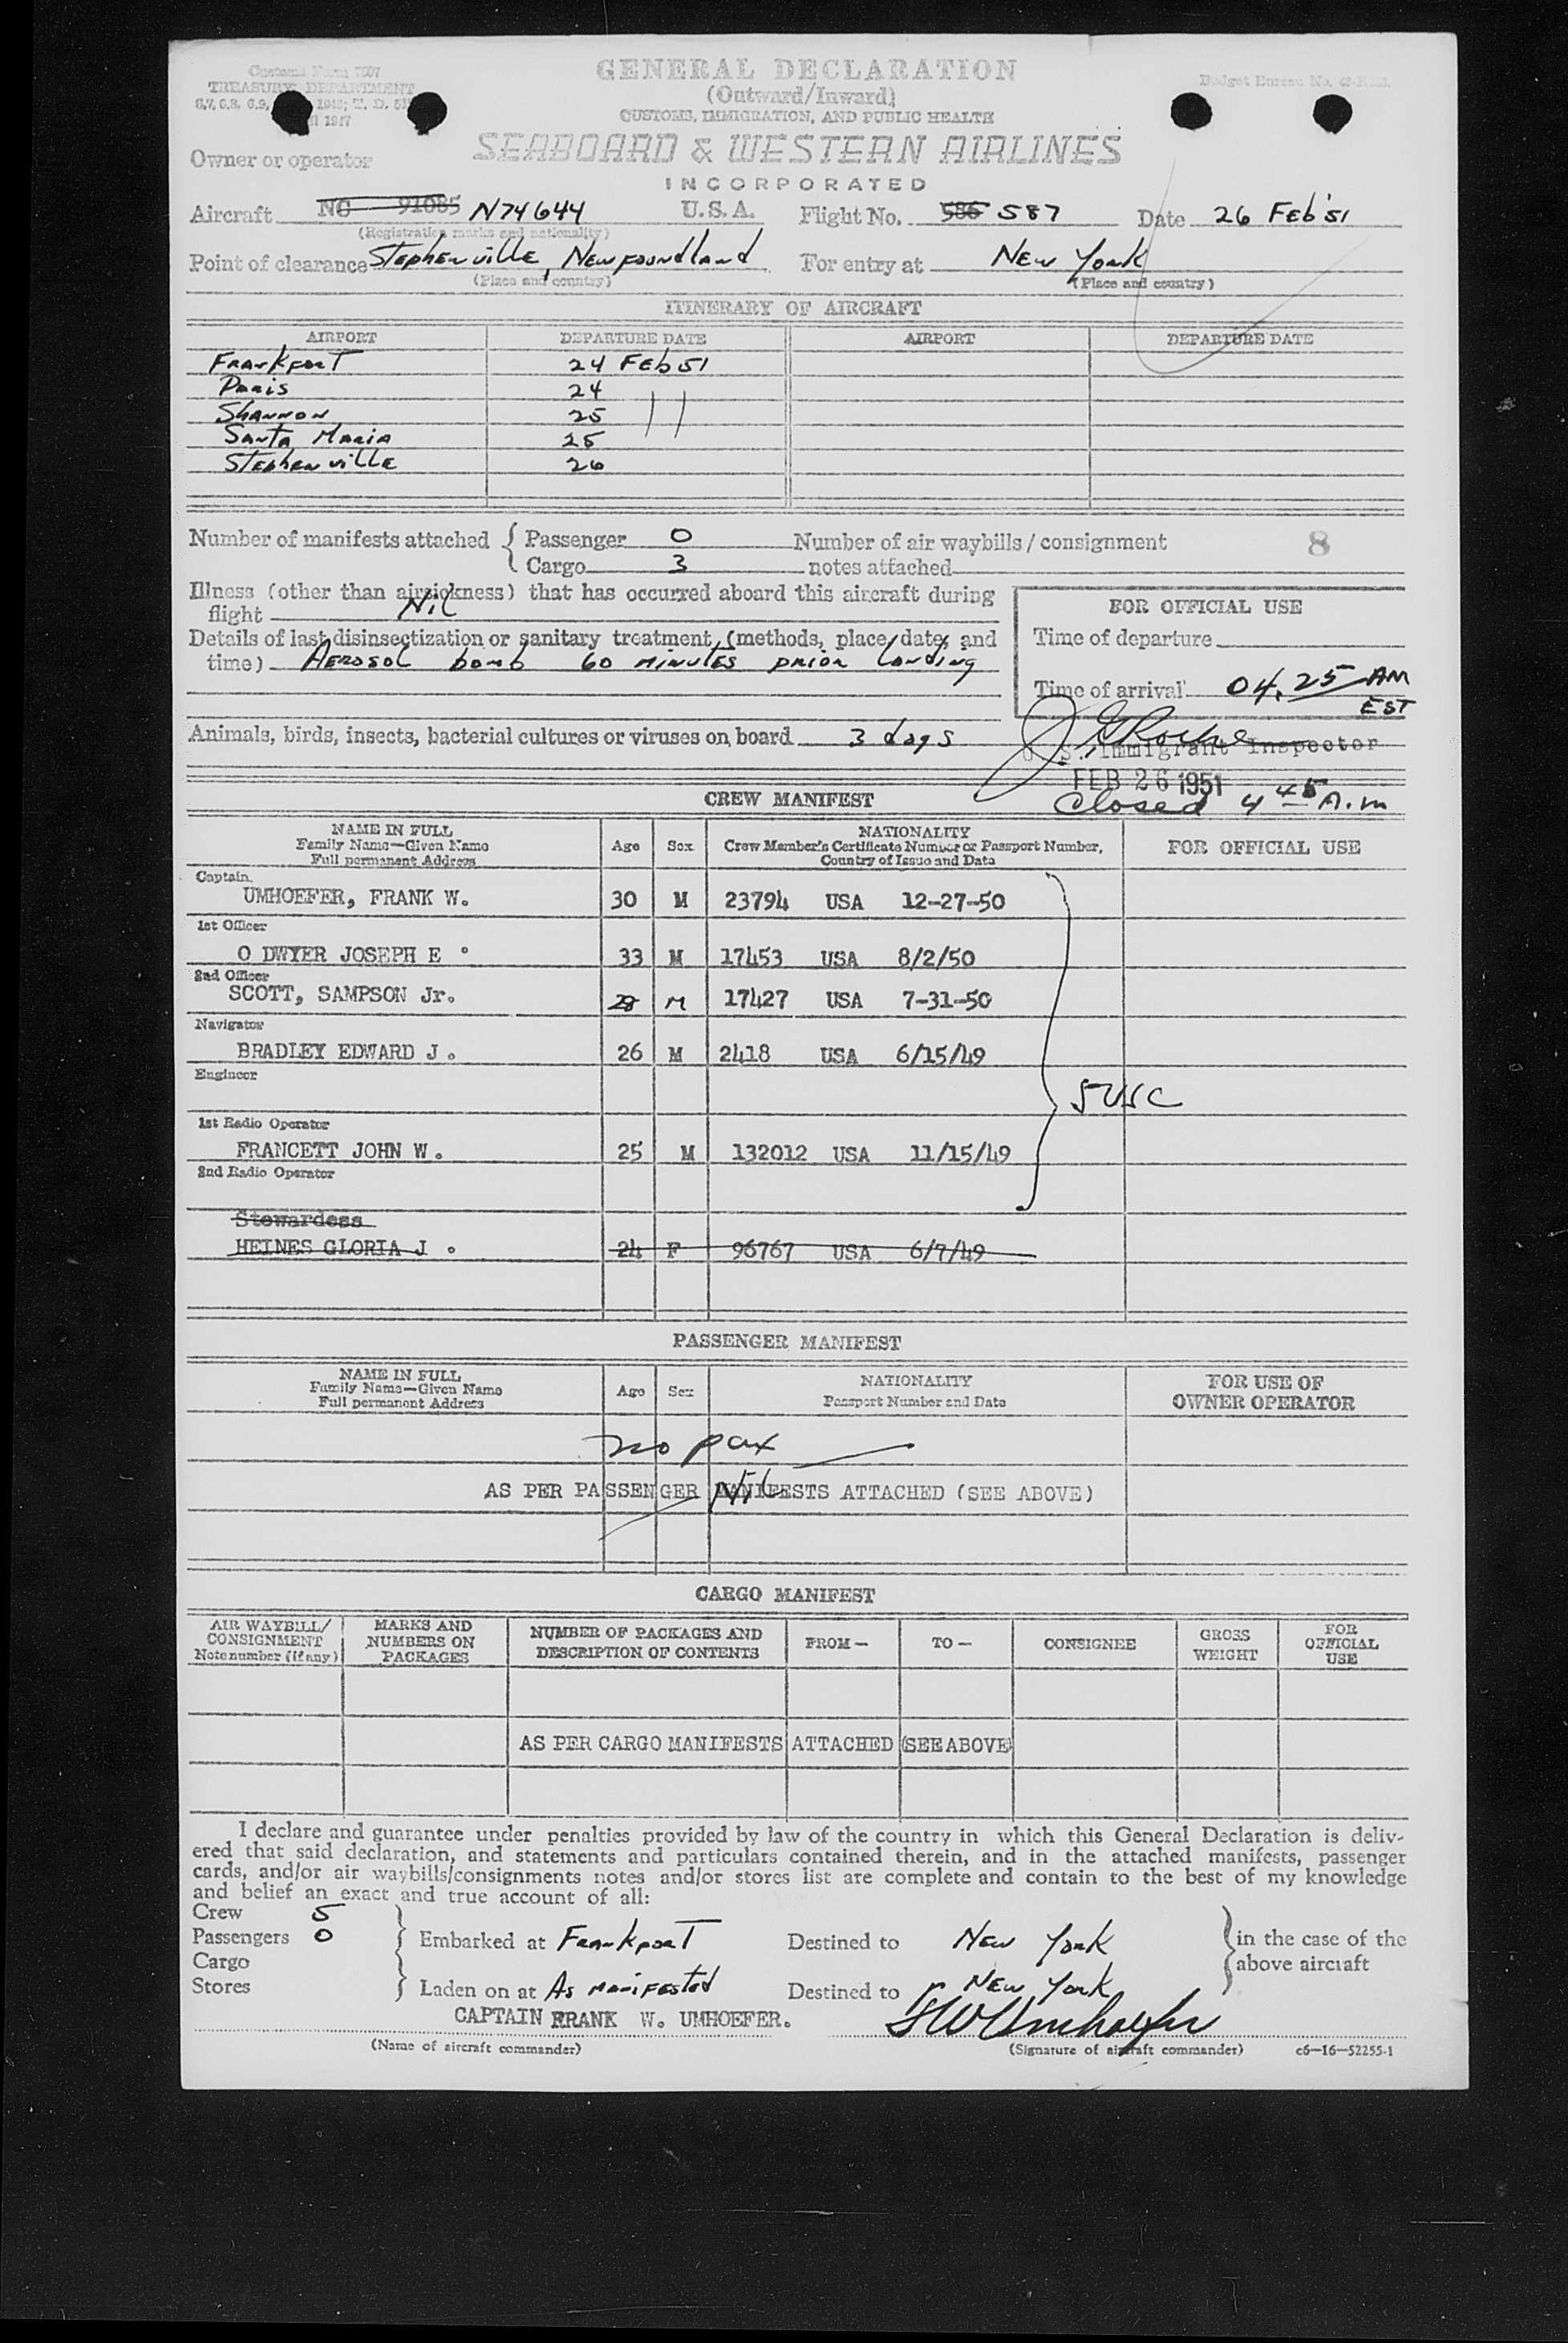 Customs Form 7507
GENERAL DECLARATION
TREASURY DEPARTMENT
(Outward/Inward)
CUSTOMS, IMMIGRATION, AND PUBLIC HEALTH
SEABOARD & WESTERN AIRLINES
Owner or operator
INCORPORATED
Aircraft NC 91085 N74644 U.S.A. Flight No. 586 587 Date 26 Feb '51
(Registration marks and nationality)
Point of clearance Stephenville, Newfoundland For entry at New York
(Place and country) (Place and country)
ITINERARY OF AIRCRAFT
AIRPORT DEPARTURE DATE AIRPORT DEPARTURE DATE
Frankfort 24 Feb 51
Paris 24
Shannon 25
Santa Maria 25
Stephenville 26
Number of manifests attached { Passenger 0 Number of air waybills / consignment 8
Cargo 3 notes attached
Illness (other than airsickness) that has occurred aboard this aircraft during
flight Nil
FOR OFFICIAL USE
Details of last disinsectization or sanitary treatment (methods, place, date, and
time) Aerosol bomb 60 minutes prior landing
Time of departure
Time of arrival 04.25 AM
EST
Animals, birds, insects, bacterial cultures or viruses on board 3 dogs
U. S. Immigrant Inspector
FEB 26 1951
Closed 4 45 A.m
CREW MANIFEST
NAME IN FULL
Family Name—Given Name
Full permanent Address
Age Sex
NATIONALITY
Crew Member's Certificate Number or Passport Number,
Country of Issue and Date
FOR OFFICIAL USE
Captain
UMHOEFER, FRANK W. 30 M 23794 USA 12-27-50
1st Officer
O DWYER JOSEPH E . 33 M 17453 USA 8/2/50
2nd Officer
SCOTT, SAMPSON Jr. 28 M 17427 USA 7-31-50
Navigator
BRADLEY EDWARD J . 26 M 2418 USA 6/15/49
Engineer
5 USC
1st Radio Operator
FRANCETT JOHN W . 25 M 132012 USA 11/15/49
2nd Radio Operator
Stewardess
HEINES GLORIA J . 24 F 96767 USA 6/7/49
PASSENGER MANIFEST
NAME IN FULL
Family Name—Given Name
Full permanent Address
Age Sex
NATIONALITY
Passport Number and Date
FOR USE OF
OWNER OPERATOR
no pax
AS PER PASSENGER MANIFESTS ATTACHED (SEE ABOVE)
Nil
CARGO MANIFEST
AIR WAYBILL/
CONSIGNMENT
Note number (if any)
MARKS AND
NUMBERS ON
PACKAGES
NUMBER OF PACKAGES AND
DESCRIPTION OF CONTENTS
FROM—
TO—
CONSIGNEE
GROSS
WEIGHT
FOR
OFFICIAL
USE
AS PER CARGO MANIFESTS ATTACHED (SEE ABOVE)
I declare and guarantee under penalties provided by law of the country in which this General Declaration is deliv-
ered that said declaration, and statements and particulars contained therein, and in the attached manifests, passenger
cards, and/or air waybills/consignments notes and/or stores list are complete and contain to the best of my knowledge
and belief an exact and true account of all:
Crew 5
Passengers 0 Embarked at Frankfort Destined to New York in the case of the
Cargo above aircraft
Stores Laden on at As manifested Destined to New York
CAPTAIN FRANK W. UMHOEFER. FWUmhoefer
(Name of aircraft commander) (Signature of aircraft commander) c6—16—52255-1